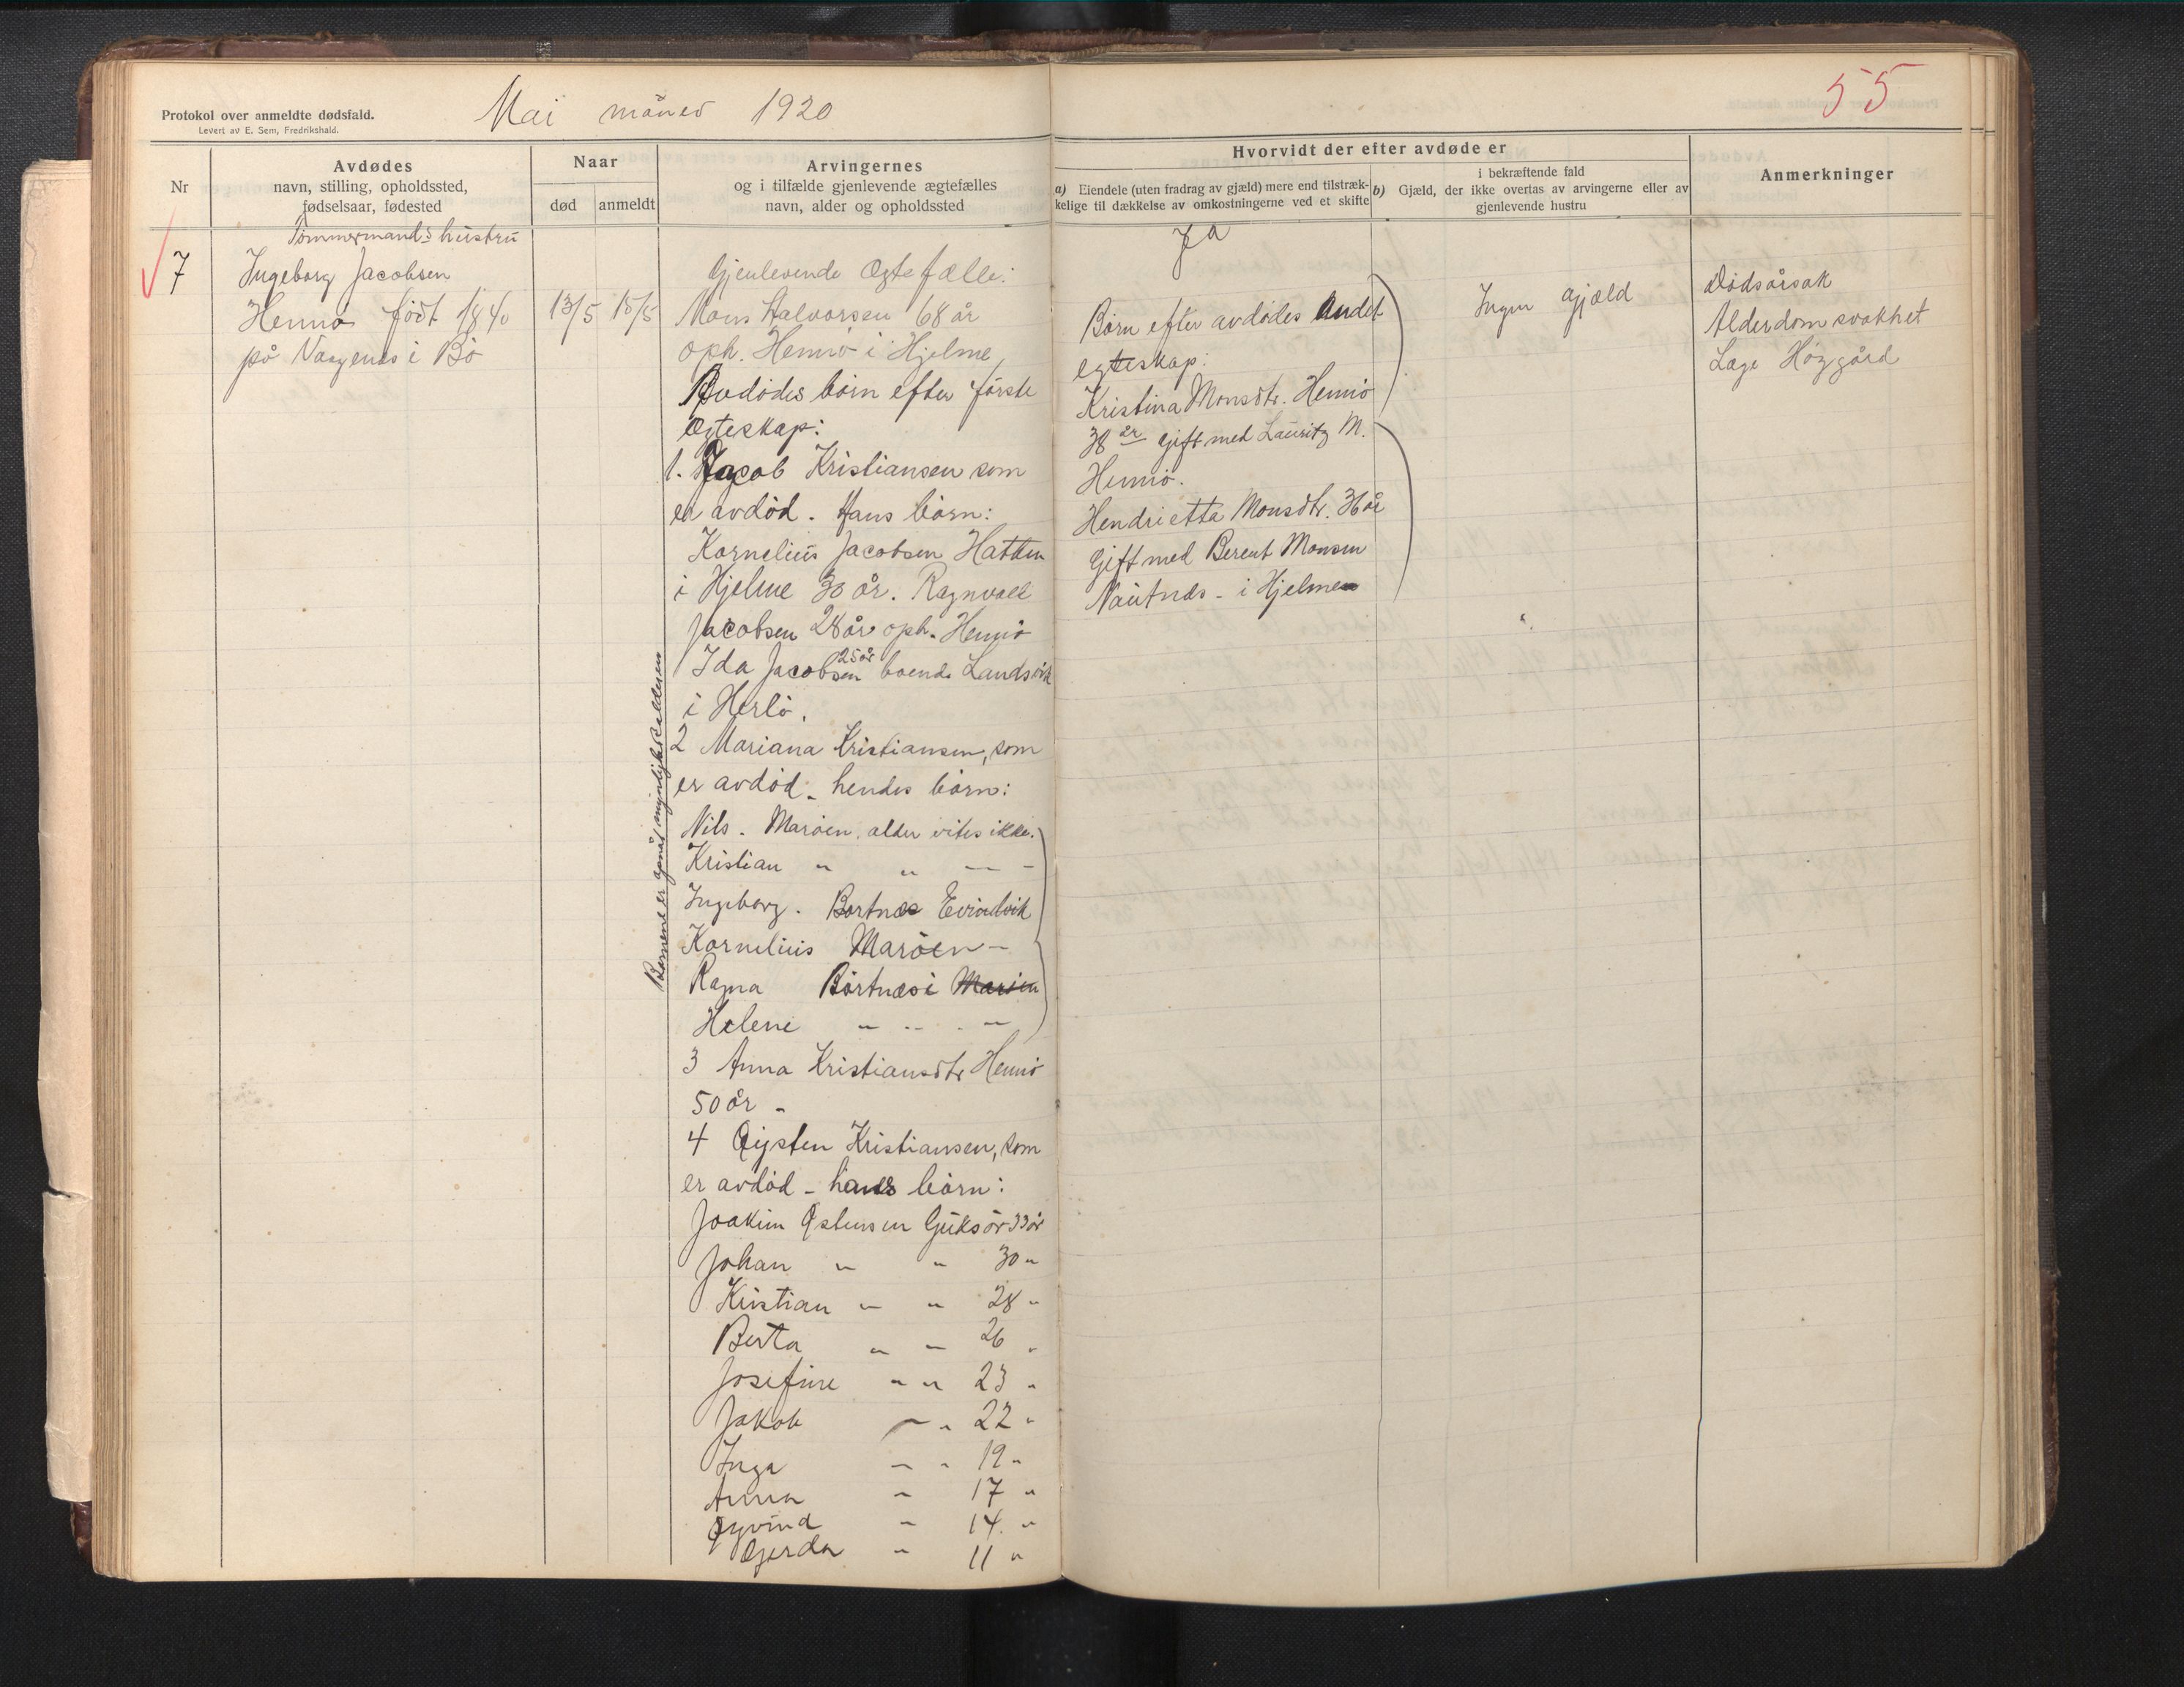 Protokol over anmeldte dødsfald.
Levert av E. Sem, Fredrikshald.
Mai måned 1920
55
Nr
Avdødes
navn, stilling, opholdssted,
fødselsaar, fødested
Naar
død
anmeldt
Arvingernes
og i tilfælde gjenlevende ægtefælles
navn, alder og opholdssted
Hvorvidt der efter avdøde er
a) Eiendele (uten fradrag av gjæld) mere end tilstræk-
kelige til dækkelse av omkostningerne ved et skifte
i bekræftende fald
b) Gjæld, der ikke overtas av arvingerne eller av
gjenlevende hustru
Anmerkninger
Tømmermands hustru
7
Ingeborg Jacobsen
Hennø født 1840
på Vaagenes i Bö
13/5
15/5
Gjenlevende Ægtefælle:
Mons Halvorsen 68 år
oph. Hennö i Hjelme
Avdödes börn efter förste
Ægteskap:
1. Jacob Kristiansen som
er avdöd. Hans börn:
Kornelius Jacobsen Hatten
i Hjelme 30 år. Ragnvald
Jacobsen 28 år oph. Hennö
Ida Jacobsen 25 år boende Landsvik
i Herlö.
2 Mariana Kristiansen, som
er avdöd - hendes börn:
Nils - Maröen, alder vites ikke.
Kristian " " — -
Ingeborg. Bortnæs Evindvik
Kornelius Maröen -
Ragna Börtnæs i Maröen
Helene " " . "
3 Anna Kristiansdtr Hennö
50 år -
4 Öysten Kristiansen, som
er avdöd - hans börn:
Joakim Østensen Gjuksör 33 år
Johan " " 30 "
Kristian " " 28 "
Berta " " 26 "
Josefine " " 23 "
Jakob " " 22 "
Inga " " 19 "
Anna " 17 "
Øyvind " 14. "
Gjerda " 11 "
Barnene er opnåt myndighetsalderen
Ja
Börn efter avdödes Andet
egteskap:
Kristina Monsdtr. Hennö
38 år gift med Lauritz M.
Hennö.
Hendrietta Monsdtr. 36 år
Gift med Berent Monsen
Nautnes - i Hjelme
Ingen gjæld
Dödsårsak
Alderdomsvakhet
Læge Høygård